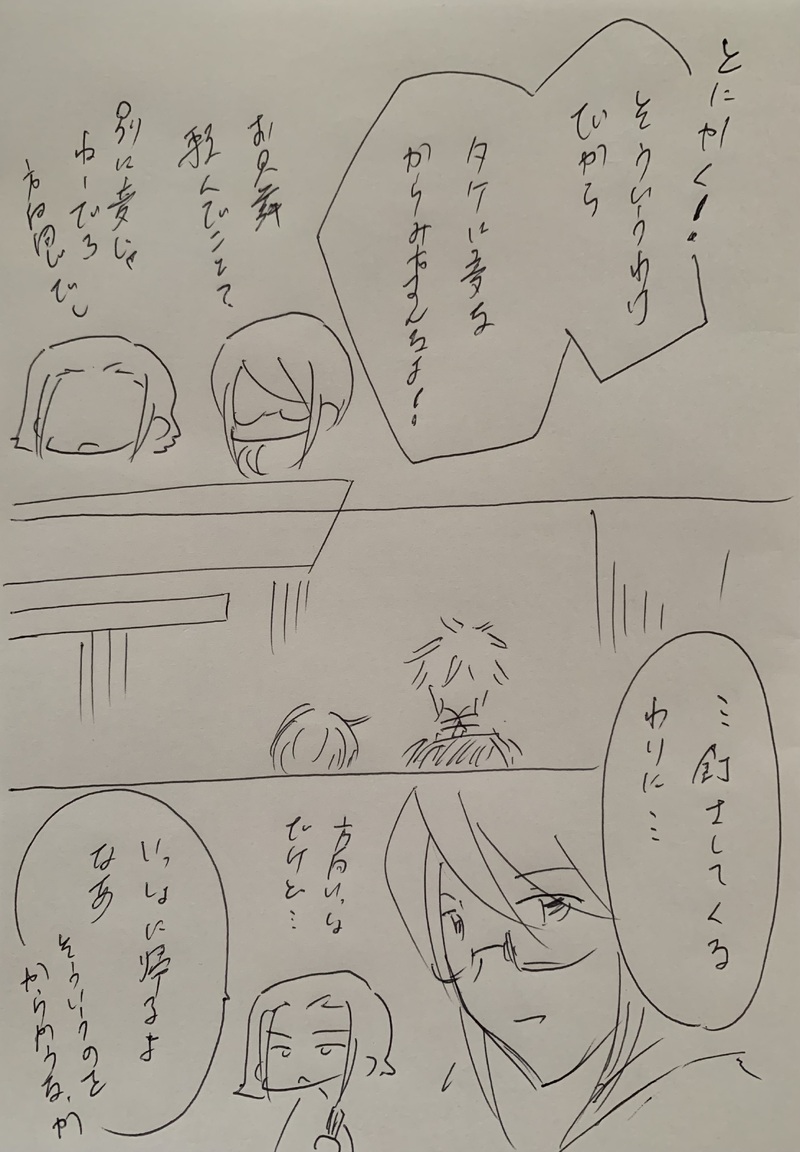 とにかく!
そういうわけ
だから
タケに変な
からみすんなよ!
お見舞
頼んでことて、
別に変じゃ
ねーだろ
…釘さしてくる
わりに…
方向いっしょ
だけど…
いっしょに帰るよ
なあ
そーいうのを
からかうな、か